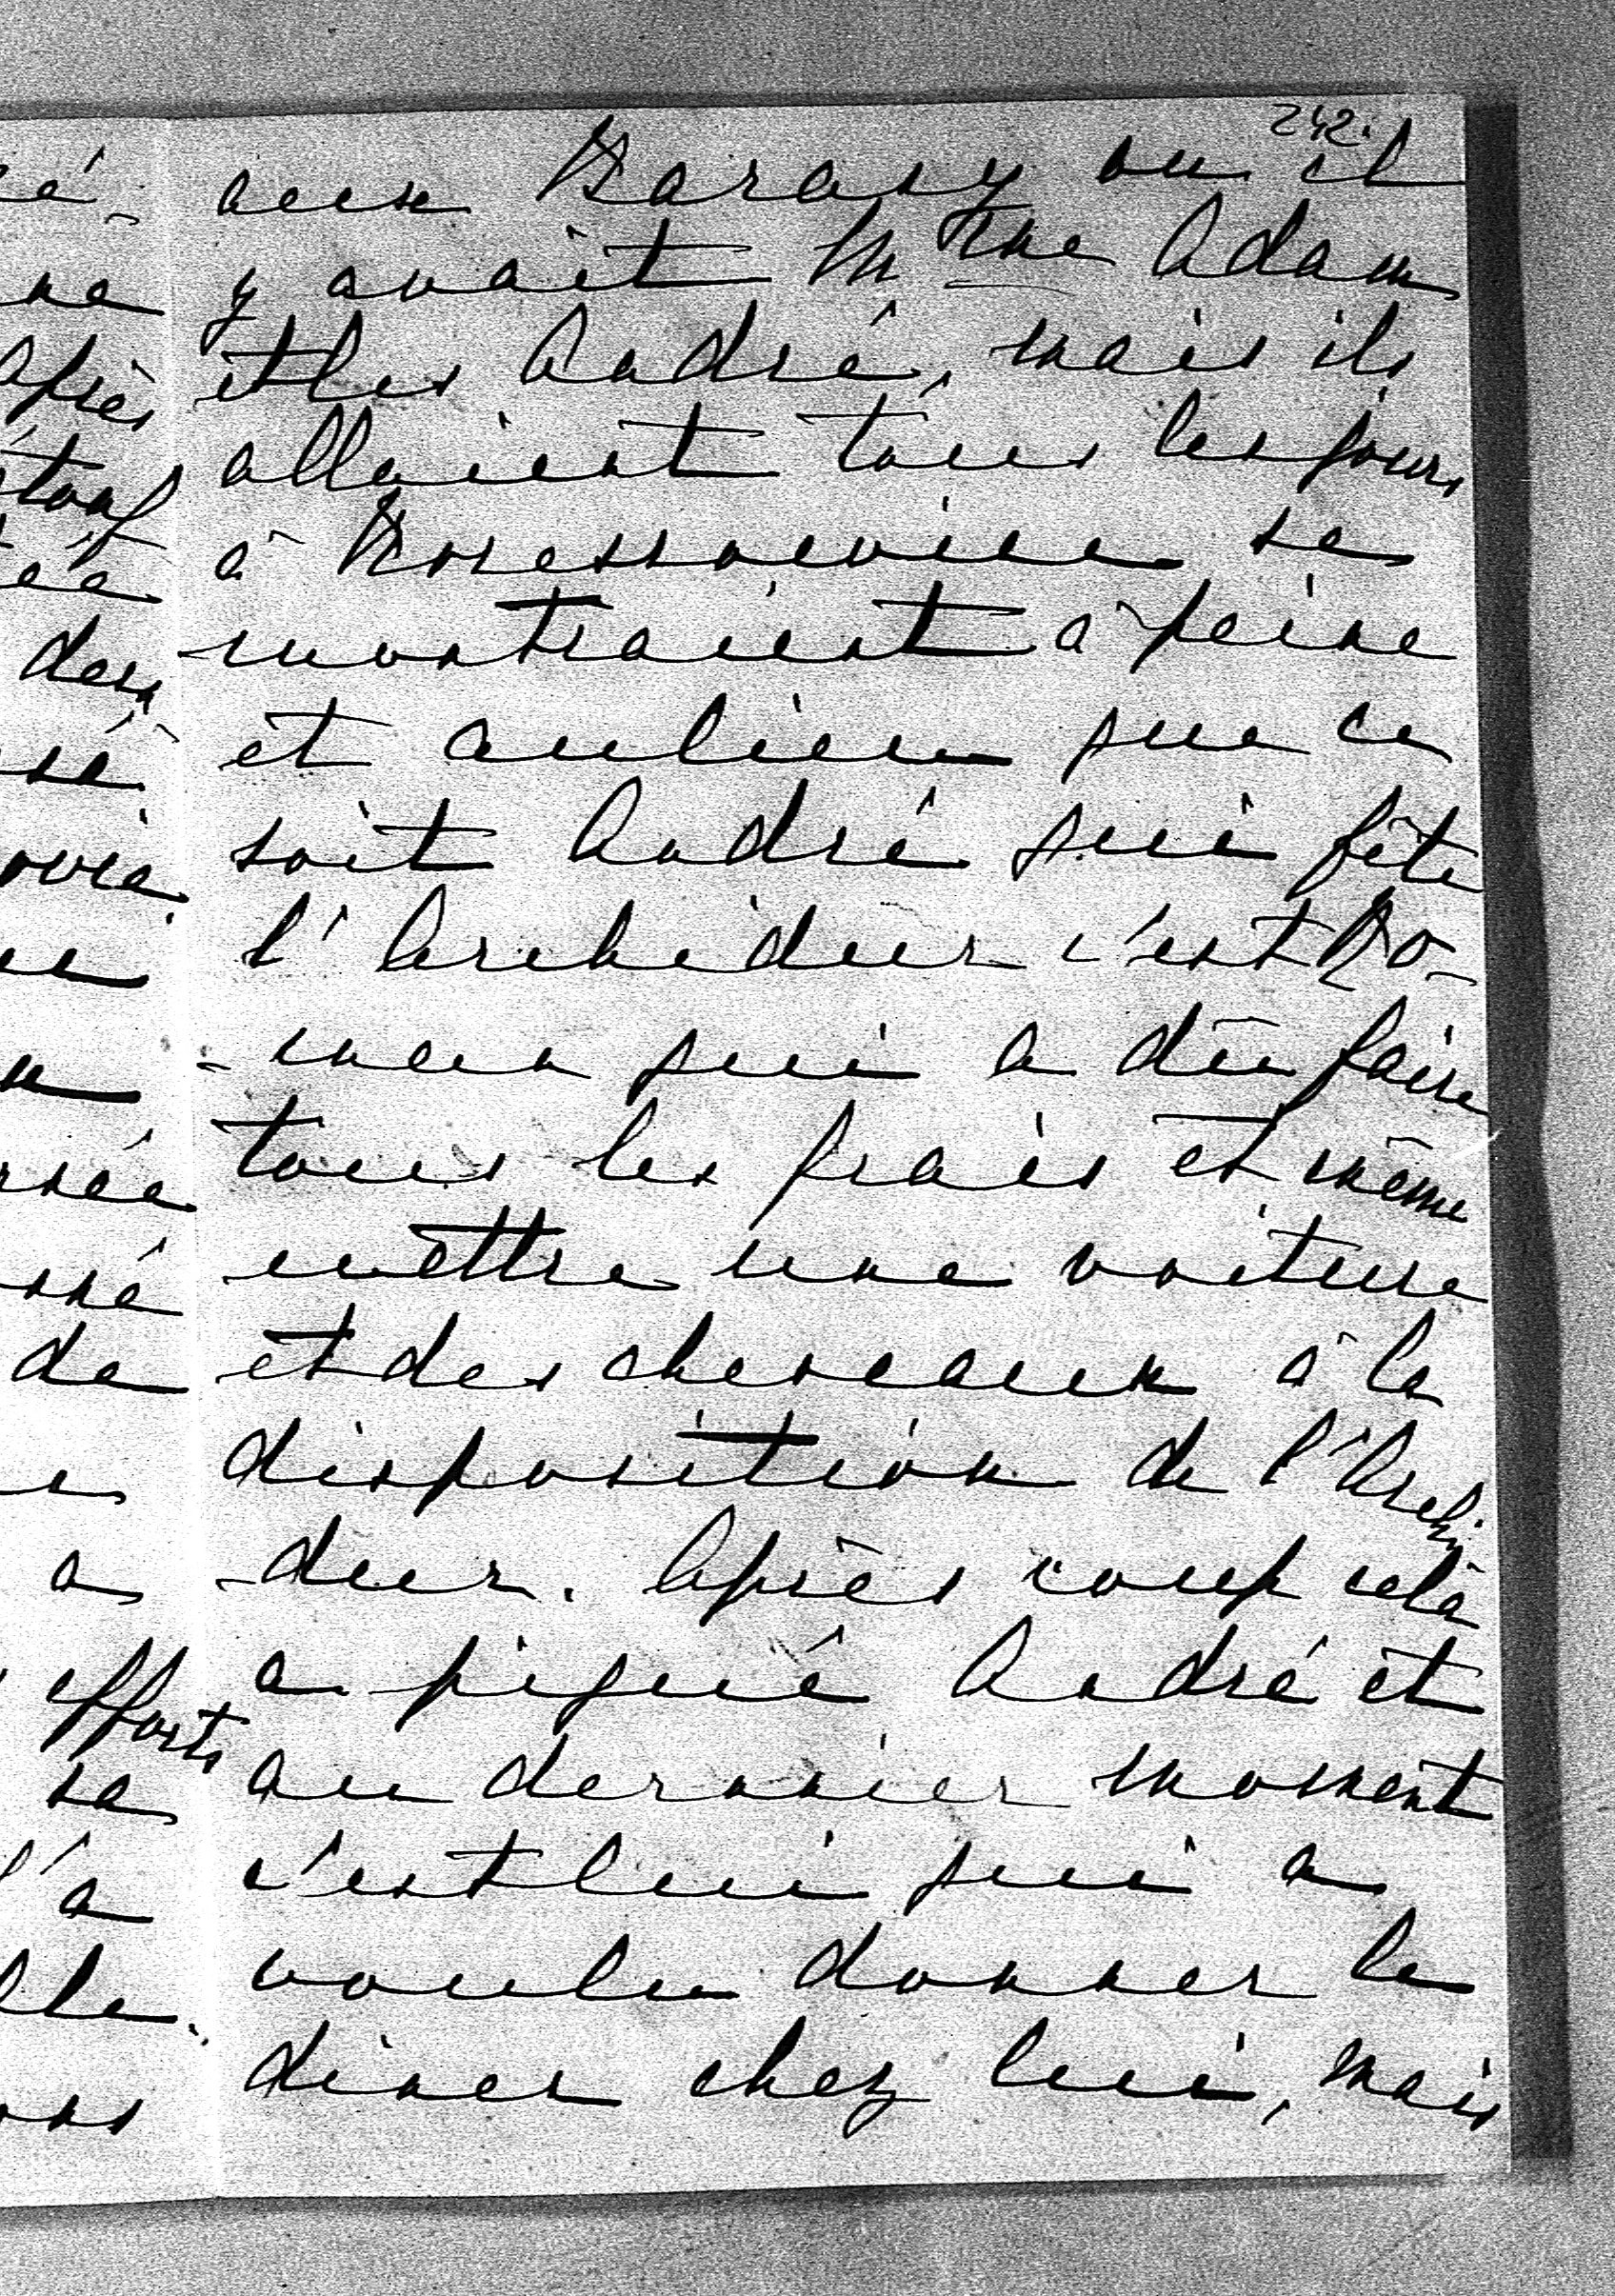 242.
aux Barany ou il
y avait Mme Adam
et les André, mais ils
allaient tous les jours
à se
montraient à peine
et aulieu que ce
soit André qui fête
l'Archiduc c'est Ro-
-man qui a dû faire
tous les frais et même
mettre une voiture
et des chevaux à la
disposition de l'Archi-
-duc. Après coup cela
a piqué André et
au dernier moment
c'est lui qui a
voulu donner le
diner chez lui, mais